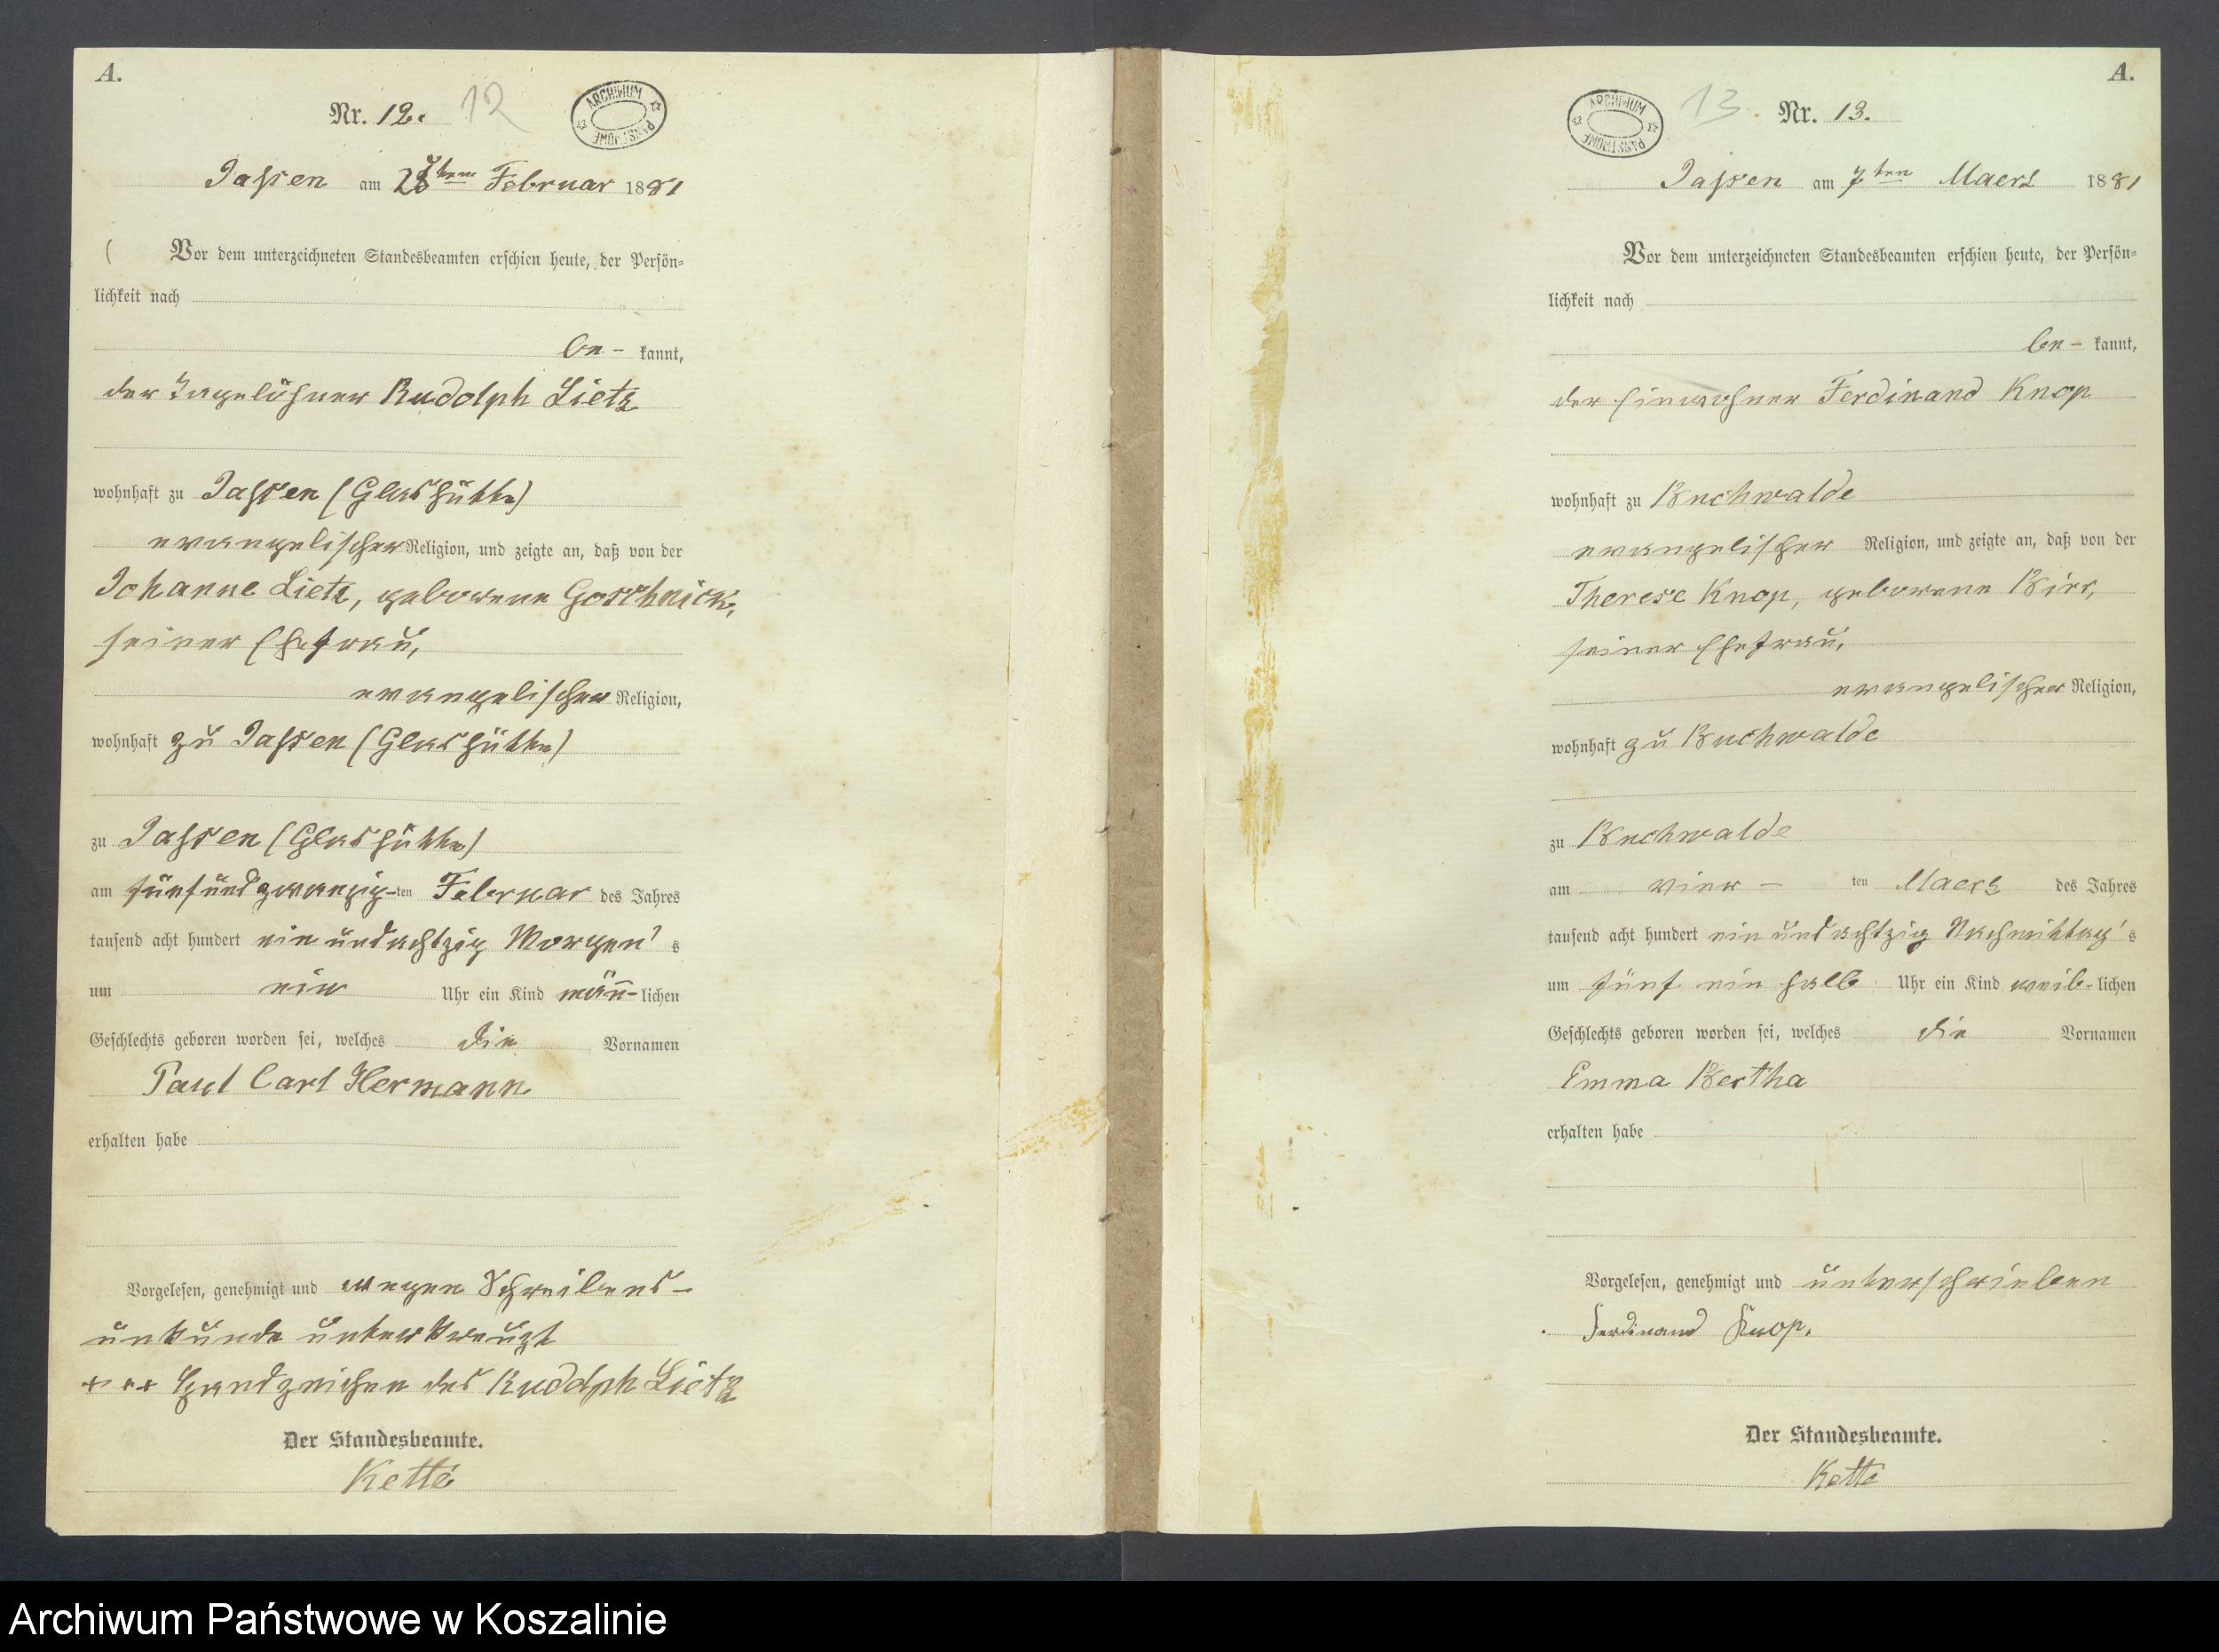 A.
Nr. 12. 12
ARCHIWUM PAŃSTWOWE
Jassen am 28ten Februar 1881
Vor dem unterzeichneten Standesbeamten erschien heute, der Persön-
lichkeit nach
be- kannt,
der Tagelöhner Rudolph Lietz
wohnhaft zu Jassen (Glashütte)
evangelischer Religion, und zeigte an, daß von der
Johanne Lietz, geborene Goschnick,
seiner Ehefrau,
evangelischer Religion,
wohnhaft zu Jassen (Glashütte)
zu Jassen (Glashütte)
am fünfundzwanzig-ten Februar des Jahres
tausend acht hundert ein undachtzig Morgen's
um ein Uhr ein Kind männ-lichen
Geschlechts geboren worden sei, welches die Vornamen
Paul Carl Hermann
erhalten habe
Vorgelesen, genehmigt und wegen Schreibens-
unkunde unterkreuzt
+++ Handzeichen des Rudolph Lietz
Der Standesbeamte.
Kette
A.
ARCHIWUM PAŃSTWOWE
13 Nr. 13.
Jassen am 7ten Maerz 1881
Vor dem unterzeichneten Standesbeamten erschien heute, der Persön-
lichkeit nach
be- kannt,
der Einwohner Ferdinand Knop
wohnhaft zu Buchwalde
evangelischer Religion, und zeigte an, daß von der
Therese Knop, geborene Birr,
seiner Ehefrau,
evangelischer Religion,
wohnhaft zu Buchwalde
zu Buchwalde
am vier- ten Maerz des Jahres
tausend acht hundert ein und achtzig Nachmittag's
um fünf ein halb Uhr ein Kind weib-lichen
Geschlechts geboren worden sei, welches die Vornamen
Emma Bertha
erhalten habe
Vorgelesen, genehmigt und unterschrieben
Ferdinand Knop.
Der Standesbeamte.
Kette
Archiwum Państwowe w Koszalinie